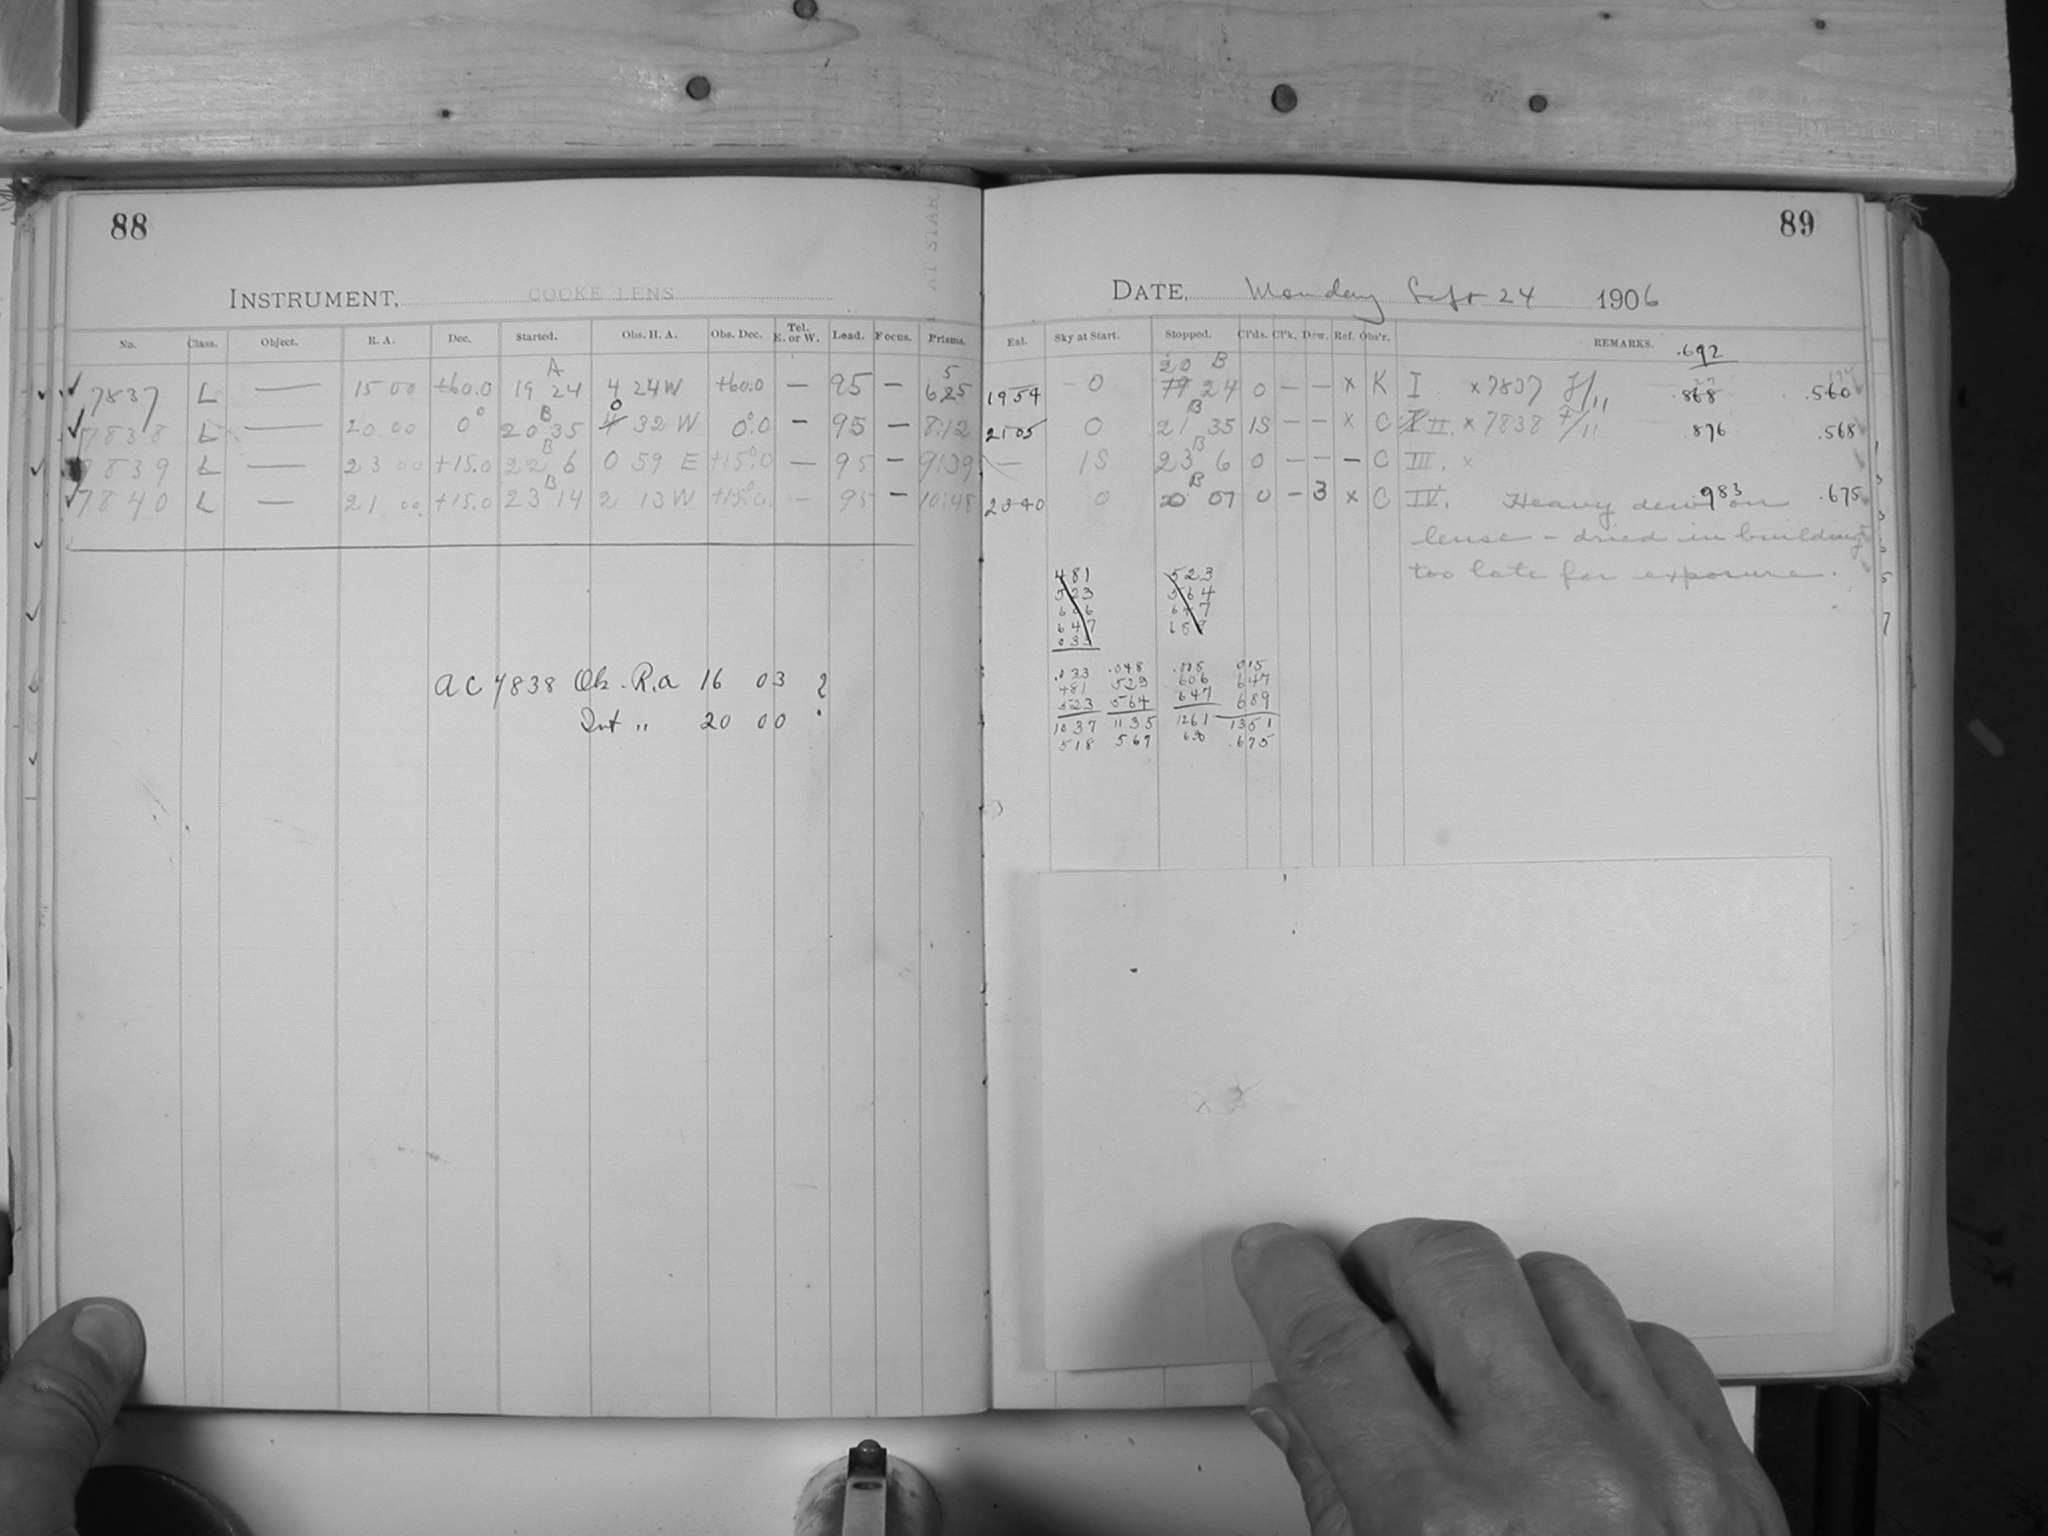 88
INSTRUMENT, COOKE LENS
No. Class. Object. R. A. Dec. Started. Obs. H. A. Obs. Dec. Tel. E. or W. Load. Focus. Prisms.
A 5
7837 L — 15 00 +60.0 19 24 4 24 W +60.0 — 95 — 625
B 0
7838 L — 20 00 0° 20 35 4 32 W 0°.0 — 95 — 8:12
B
7839 L — 23 00 +15.0 22 6 0 59 E +15°.0 — 95 — 9:39
B
7840 L — 21 00 +15.0 23 14 2 13 W +15°.0 — 95 — 10:48
AC 7838 Ob. R.a 16 03 ?
Int " 20 00
89
DATE, Monday Sept 24 1906
Exl. Sky at Start. Stopped. Cl'ds. Cl'k. Dew. Ref. Obs'r. REMARKS. .692
20 B
1954 0 19 24 0 — — x K I x 7837 F/11 .868 .560
B
2105 0 21 35 1S — — x C I II. x 7838 F/11 876 .568
B
— 1S 23 6 0 — — — C III. x
B
2340 0 07 0 — 3 x C IV. Heavy dew on 983 .675
lense – dried in building
too late for exposure.
481 523
523 564
606 647
647
033
.033 .048 015
481 523 606 647
523 564 647 689
1037 1135 1261 1351
518 567 630 .675